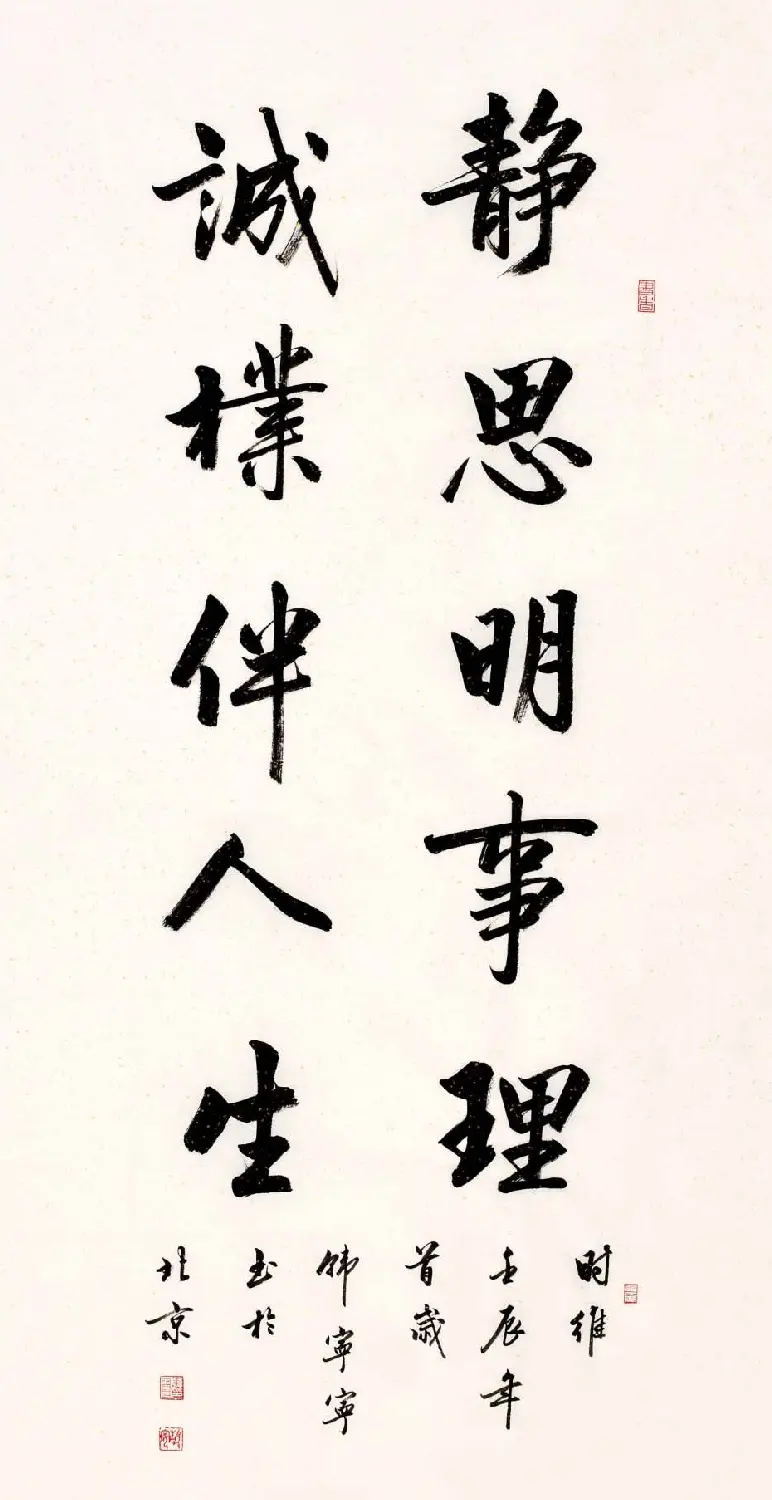 静思明事理
誠樸伴人生
时維
壬辰年
首歲
韩寧寧
书於
北京